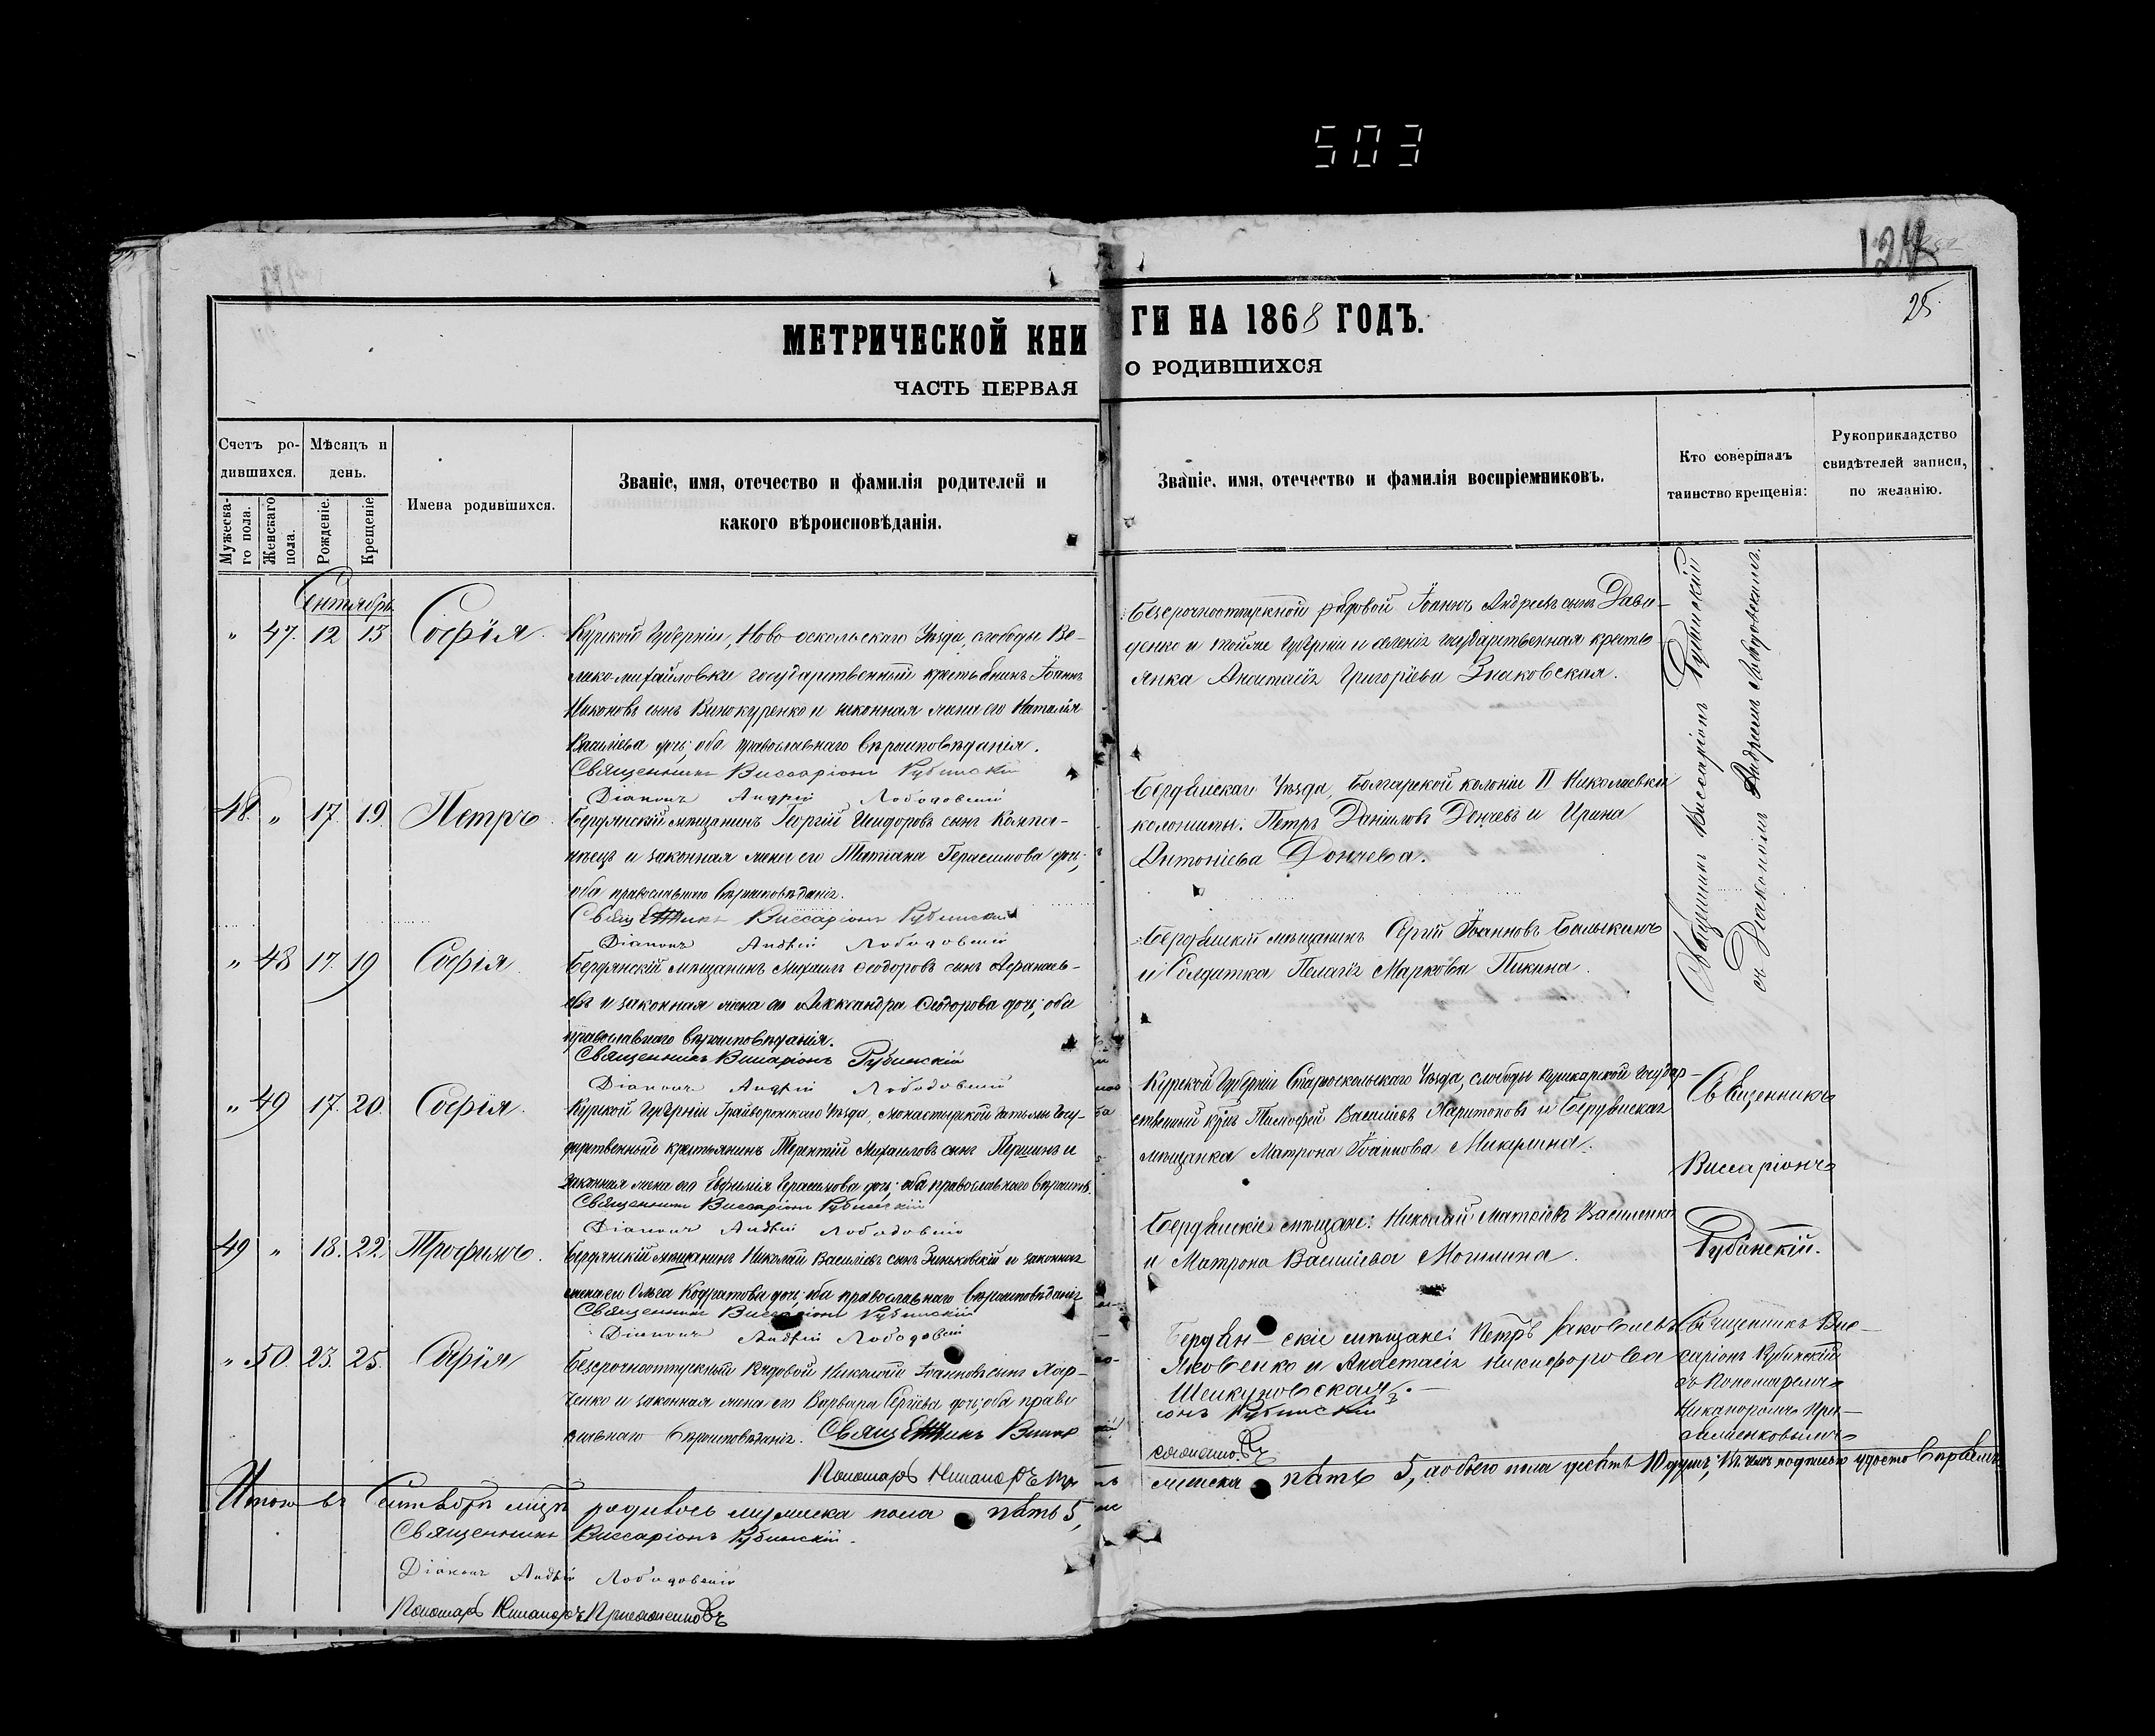 503
124
25
МЕТРИЧЕСКОЙ КНИГИ НА 1868 ГОДЪ.
ЧАСТЬ ПЕРВАЯ О РОДИВШИХСЯ
Счетъ родившихся.
Мужескаго пола.
Женскаго пола.
Мѣсяцъ и день.
Рожденіе.
Крещеніе
Имена родившихся.
Званіе, имя, отечество и фамилія родителей и
какого вѣроисповѣданія.
Званіе, имя, отечество и фамилія воспріемниковъ.
Кто совершалъ
таинство крещенія:
Рукоприкладство
свидѣтелей записи,
по желанію.
Сентябрь
" 47. 12 13 Софія.
Курской Губерніи, Ново-оскольскаго Уѣзда, слободы Ве-
ликомихайловки государственный крестьянинъ Іоаннъ
Никоновъ сынъ Винокуренко и законная жена его Наталія
Василіева дочь; оба православнаго вѣроисповѣданія.
Священникъ Виссаріонъ Рубинскій
Діаконъ Андрей Лободовскій
Безсрочноотпускной рядовой Іоаннъ Андреевъ сынъ Дави-
денко и тойже губерніи и селенія государственная кресть-
янка Анастасія Григоріева Знаковская.
Священникъ Виссаріонъ Рубинскій
съ Діакономъ Андреемъ Лободовскимъ.
48. " 17. 19. Петръ.
Бердянскій мѣщанинъ Георгій Исидоровъ сынъ Компа-
ніецъ и законная жена его Татіана Герасимова дочь;
оба православнаго вѣроисповѣданія.
Священникъ Виссаріонъ Рубинскій
Діаконъ Андрей Лободовскій
Бердянскаго Уѣзда, Болгарской колоніи II Николаевки
колонисты: Петръ Даніиловъ Дончевъ и Ирина
Антоніева Дончева.
" 48 17. 19 Софія.
Бердянскій мѣщанинъ Михаилъ Ѳеодоровъ сынъ Афанась-
евъ и законная жена его Александра Ѳеодорова дочь; оба
православнаго вѣроисповѣданія.
Священникъ Виссаріонъ Рубинскій
Діаконъ Андрей Лободовскій
Бердянскій мѣщанинъ Сергій Іоанновъ Балыкинъ
и Солдатка Пелагія Маркова Пикина.
" 49 17. 20. Софія.
Курской Губерніи Грайворонскаго Уѣзда, Монастырской госу-
дарственный крестьянинъ Терентій Михаиловъ сынъ Першинъ и
законная жена его Евфимія Герасимова дочь; оба православнаго вѣроиспов.
Священникъ Виссаріонъ Рубинскій
Діаконъ Андрей Лободовскій
Курской Губерніи Старооскольскаго Уѣзда, слободы государ-
ственный Тимофей Василіевъ Харитоновъ и Бердянская
мѣщанка Матрона Іоаннова Микулина.
Священникъ
Виссаріонъ
Рубинскій.
49 " 18. 22. Трофимъ.
Бердянскій мѣщанинъ Николай Василіевъ сынъ Зиньковскій и законная
жена его Ольга Кодратова дочь; оба православнаго вѣроисповѣданія
Священникъ Виссаріонъ Рубинскій
Діаконъ Андрей Лободовскій
Бердянскіе мѣщане: Николай Матѳіевъ Василенко
и Матрона Василіева Могилина.
" 50. 23. 25. Софія
Безсрочноотпускный Рядовой Николай Іоанновъ сынъ Хар-
ченко и законная жена его Варвара Сергіева дочь; оба право
славнаго вѣроисповѣданія. Священникъ Виссар
іонъ Рубинскій
Пономарь Никаноръ
Бердян-скіе мѣщане: Петръ Іаковлевъ
Яковенко и Анастасія Никифорова
Шейкуновская.
Священникъ Вис-
саріонъ Рубинскій
съ Пономаремъ
Никаноромъ
Итого въ Сентябрѣ мѣцѣ родилось мужеска пола пять 5, женска пять 5, а обоего пола десять 10 душъ; въ чемъ подписью удостовѣряемъ
Священникъ Виссаріонъ Рубинскій.
Діаконъ Андрей Лободовскій
Пономарь Никаноръ